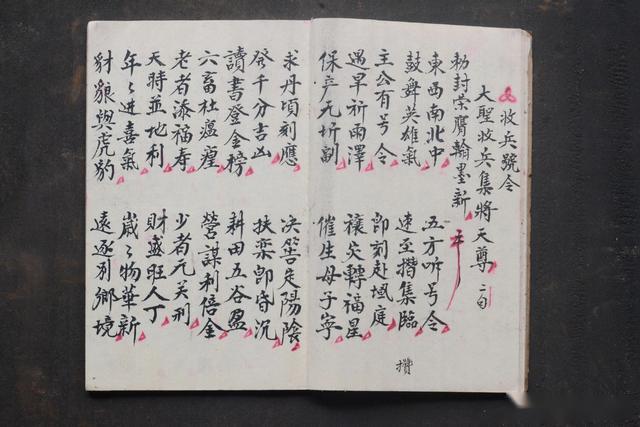 收兵號令
大聖收兵集將天尊 二句
勅封崇膺翰墨新
東西南北中 五方听号令
鼓舞英雄氣 速至揩集臨
主公有号令 即刻赴域庭
遇旱祈雨澤 禳灾轉福星
保产无圻副 催生母子寧
揩
求丹頃刻應 决筶定陽陰
癸千分吉凶 扶桨即昏沉
讀書登金榜 耕田五谷盈
六畜杜瘟瘽 營謀利倍金
老者添福寿 少者冗关刑
天時並地利 財盛旺人丁
年〻進喜氣 歲〻物華新
豺狼與虎豹 遠逐别鄉境